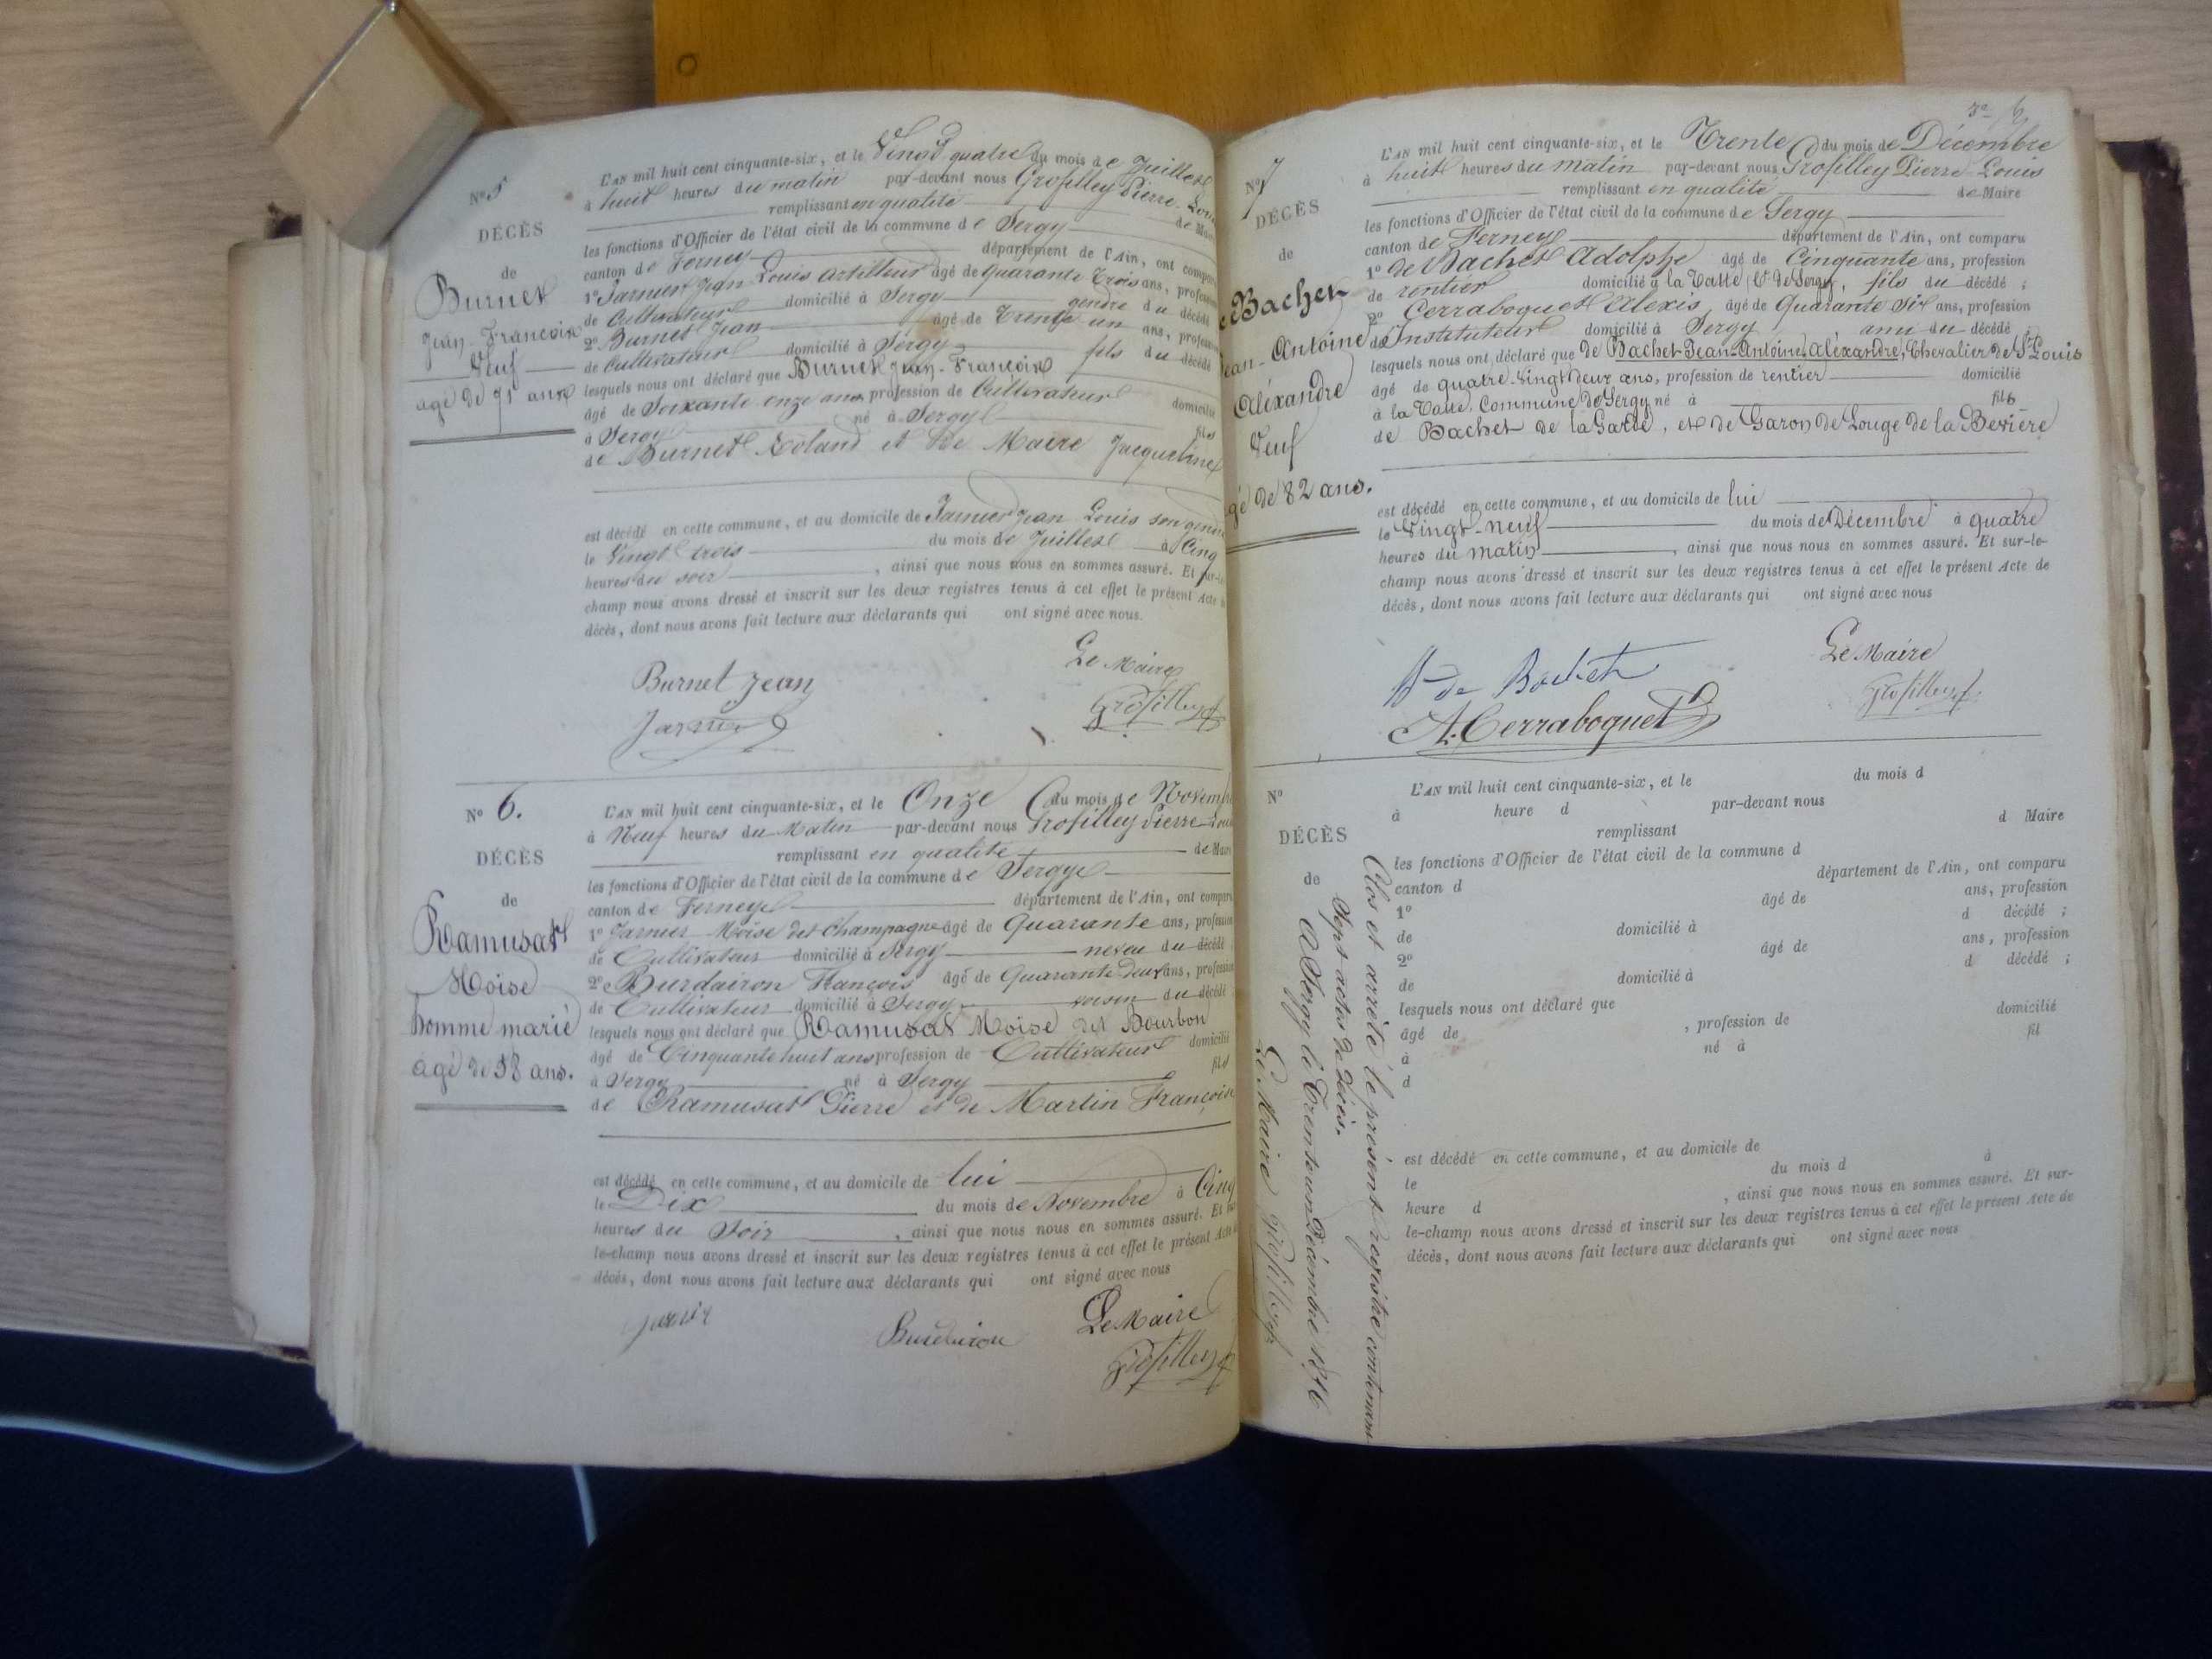 No 5
DÉCÈS
de
Burnet
Jean-François
Veuf
agé de 71 ans
L'AN mil huit cent cinquante-six, et le Vingt quatre du mois de Juillet
à huit heures du matin par-devant nous Grosilley Pierre-Louis
remplissant en qualité de Maire
les fonctions d'Officier de l'état civil de la commune de Sergy
canton de Ferney département de l'Ain, ont comparu
1o Jarnier Jean Louis artilleur âgé de quarante trois ans, profession
de Cultivateur domicilié à Sergy gendre du décédé
2o Burnet Jean âgé de Trente un ans, profession
de Cultivateur domicilié à Sergy fils du décédé
lesquels nous ont déclaré que Burnet Jean-François
âgé de Soixante onze ans profession de Cultivateur domicilié
à Sergy né à Sergy fils
de Burnet Roland et de Maire Jacqueline
est décédé en cette commune, et au domicile de Jarnier Jean Louis son gendre
le Vingt trois du mois de Juillet à Cinq
heures du soir, ainsi que nous nous en sommes assuré. Et sur-le-
champ nous avons dressé et inscrit sur les deux registres tenus à cet effet le présent Acte de
décès, dont nous avons fait lecture aux déclarants qui ont signé avec nous.
Le Maire
Burnet Jean
Grosilley
Jarnier
No 6.
DÉCÈS
de
Ramusat
Moise
homme marié
agé de 58 ans.
L'AN mil huit cent cinquante-six, et le Onze du mois de Novembre
à Neuf heures du Matin par-devant nous Grosilley Pierre-Louis
remplissant en qualité de Maire
les fonctions d'Officier de l'état civil de la commune de Sergy
canton de Ferney département de l'Ain, ont comparu
1o Jarnier Moise dit Champagne âgé de Quarante ans, profession
de Cultivateur domicilié à Sergy neveu du décédé
2o Burdairon François âgé de Quarante deux ans, profession
de Cultivateur domicilié à Sergy voisin du décédé
lesquels nous ont déclaré que Ramusat Moise dit Bourbon
âgé de Cinquante huit ans profession de Cultivateur domicilié
à Sergy né à Sergy fils
de Ramusat Pierre et de Martin Françoise
est décédé en cette commune, et au domicile de lui
le Dix du mois de Novembre à Cinq
heures du Soir, ainsi que nous nous en sommes assuré. Et sur-
le-champ nous avons dressé et inscrit sur les deux registres tenus à cet effet le présent Acte de
décès, dont nous avons fait lecture aux déclarants qui ont signé avec nous
Jarnier
Burdairon
Le Maire
Grosilley
No 7
DÉCÈS
de
de Bachet
Jean-Antoine
Aléxandre
Veuf
agé de 82 ans.
L'AN mil huit cent cinquante-six, et le Trente du mois de Décembre
à huit heures du matin par-devant nous Grosilley Pierre-Louis
remplissant en qualité de Maire
les fonctions d'Officier de l'état civil de la commune de Sergy
canton de Ferney département de l'Ain, ont comparu
1o de Bachet Adolphe âgé de Cinquante ans, profession
de rentier domicilié à la Batte Cne de Sergy, fils du décédé ;
2o Cerraboquet Alexis, âgé de Quarante six ans, profession
de Instituteur domicilié à Sergy, ami du décédé ;
lesquels nous ont déclaré que de Bachet Jean-Antoine, aléxandre, Chevalier de St Louis
âgé de quatre-vingt deux ans, profession de rentier domicilié
à la Batte, Commune de Sergy né à fils
de Bachet de la Garde, et de Garon de Louge de la Bevière
est décédé en cette commune, et au domicile de lui
le Vingt-neuf du mois de Décembre à quatre
heures du matin, ainsi que nous nous en sommes assuré. Et sur-le-
champ nous avons dressé et inscrit sur les deux registres tenus à cet effet le présent Acte de
décès, dont nous avons fait lecture aux déclarants qui ont signé avec nous
Le Maire
A de Bachet
Grosilley
A. Cerraboquet
No
DÉCÈS
de
L'AN mil huit cent cinquante-six, et le du mois d
à heure d par-devant nous
remplissant d Maire
les fonctions d'Officier de l'état civil de la commune d
canton d département de l'Ain, ont comparu
1o âgé de ans, profession
de domicilié à d décédé ;
2o âgé de ans, profession
de domicilié à d décédé ;
lesquels nous ont déclaré que
âgé de , profession de domicilié
à né à fil
d
est décédé en cette commune, et au domicile de
le du mois d à
heure d , ainsi que nous nous en sommes assuré. Et sur-
le-champ nous avons dressé et inscrit sur les deux registres tenus à cet effet le présent Acte de
décès, dont nous avons fait lecture aux déclarants qui ont signé avec nous
Clos et arrêté le présent registre contenant
Sept actes de décès.
A Sergy le Trente un Décembre 1856
Le Maire Grosilley